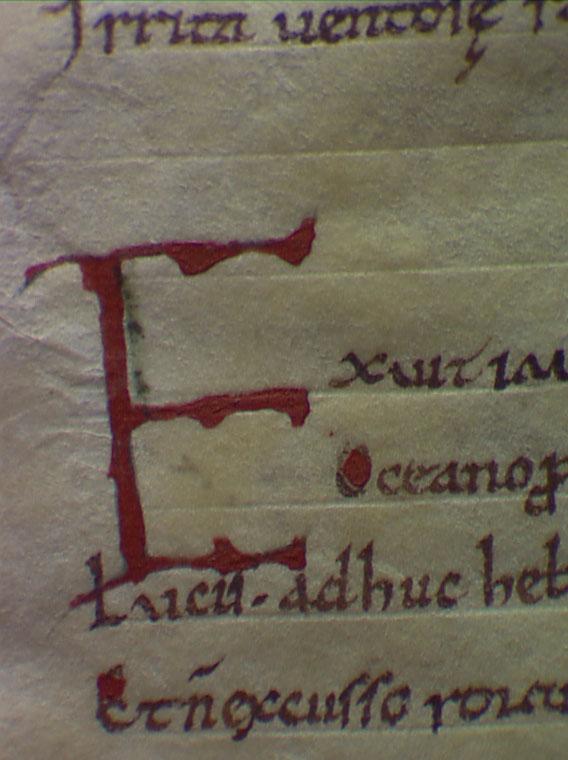 Irrita uentosę
Exuit im
Oceano ꝓ
Lucis · adhuc heb
Et n̄ excusso rora